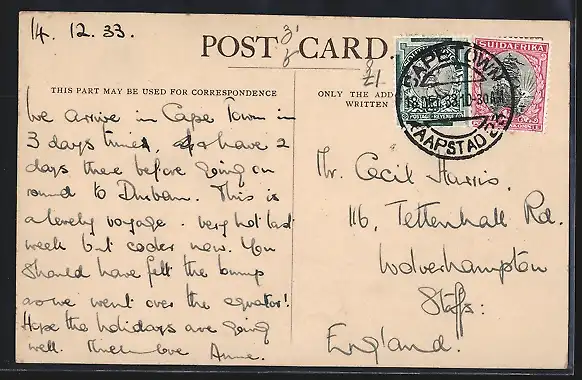 14. 12. 33.
POST CARD.
THIS PART MAY BE USED FOR CORRESPONDENCE
ONLY THE ADD
WRITTEN
SUIDAFRIKA
POSTAGE REVENUE
CAPE TOWN
18 DEC 33 10-30AM
KAAPSTAD
We arrive in Cape Town in
3 days time, & have 2
days there before going on
round to Durban. This is
a lovely voyage. very hot last
week but cooler now. You
should have felt the bump
as we went over the equator!
Hope the holidays are going
well. Much love Anne.
Mr. Cecil Harris.
116, Tettenhall Rd.
Wolverhampton
Staffs:
England.